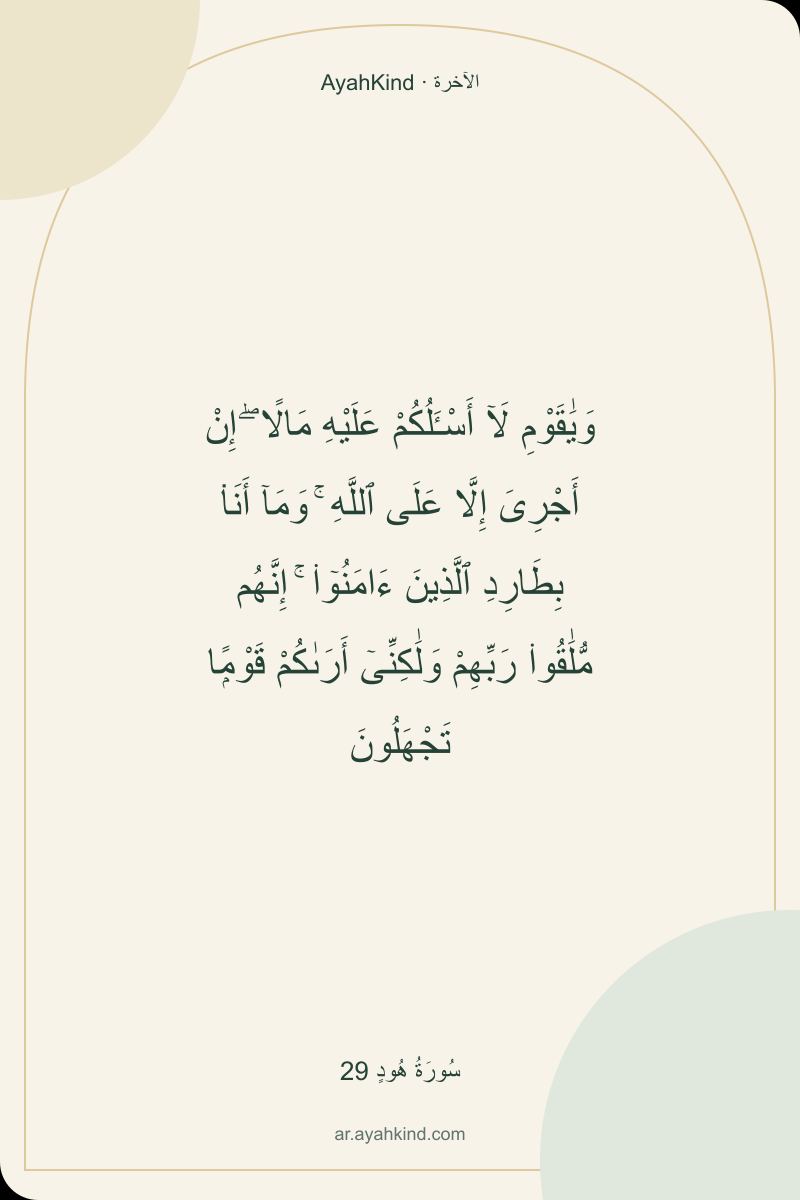 AyahKind · الآخرة
وَيَٰقَوْمِ لَآ أَسْـَٔلُكُمْ عَلَيْهِ مَالًا ۖ إِنْ
أَجْرِىَ إِلَّا عَلَى ٱللَّهِ ۚ وَمَآ أَنَا۠
بِطَارِدِ ٱلَّذِينَ ءَامَنُوٓا۟ ۚ إِنَّهُم
مُّلَٰقُوا۟ رَبِّهِمْ وَلَٰكِنِّىٓ أَرَىٰكُمْ قَوْمًۭا
تَجْهَلُونَ
سُورَةُ هُودٍ 29
ar.ayahkind.com